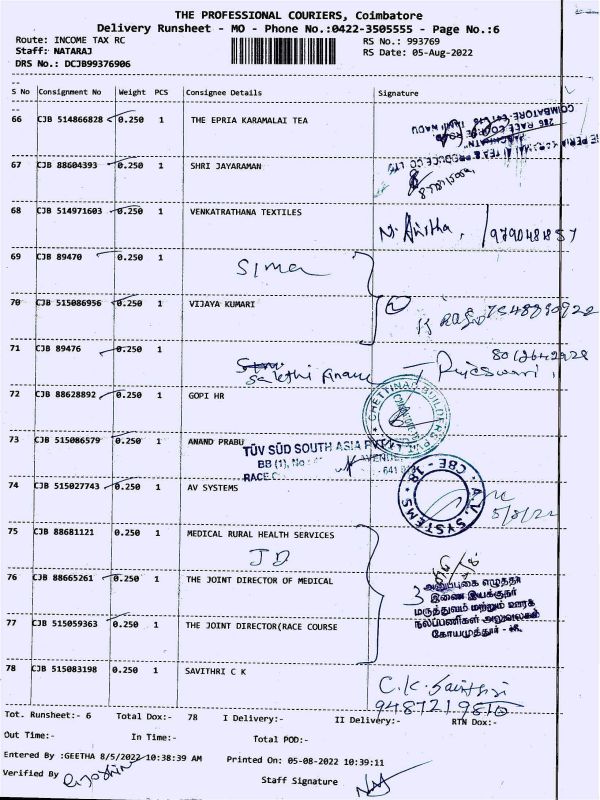 THE PROFESSIONAL COURIERS, Coimbatore
Delivery Runsheet - MO - Phone No.:0422-3505555 - Page No.:6
Route: INCOME TAX RC
RS No.: 993769
Staff: NATARAJ
RS Date: 05-Aug-2022
DRS No.: DCJB99376906
S No Consignment No Weight PCS Consignee Details Signature
66 CJB 514866828 0.250 1 THE EPRIA KARAMALAI TEA
286 RACE COURSE ROAD
COIMBATORE- TAMIL NADU
67 CJB 88604393 0.250 1 SHRI JAYARAMAN
TEA & PRODUCE CO LTD
68 CJB 514971603 0.250 1 VENKATRATHANA TEXTILES
N. Anitha,
69 CJB 89470 0.250 1
Sima
70 CJB 515086956 0.250 1 VIJAYA KUMARI
71 CJB 89476 0.250 1
Sakthi finance
72 CJB 88628892 0.250 1 GOPI HR
CHETTINAD BUILDERS PVT. LTD
73 CJB 515086579 0.250 1 ANAND PRABU
TÜV SÜD SOUTH ASIA PVT
BB (1), No
AVENUE
RACE C
641
74 CJB 515027743 0.250 1 AV SYSTEMS
A.V. SYSTEMS CBE - 18
5/8/22
75 CJB 88681121 0.250 1 MEDICAL RURAL HEALTH SERVICES
JD
76 CJB 88665261 0.250 1 THE JOINT DIRECTOR OF MEDICAL
3
அனுப்புகை எழுத்தர்
இணை இயக்குநர்
மருத்துவம் மற்றும் ஊரக
நலப்பணிகள் அலுவலகம்
கோயமுத்தூர் -
77 CJB 515059363 0.250 1 THE JOINT DIRECTOR(RACE COURSE
78 CJB 515083198 0.250 1 SAVITHRI C K
C.K. Savithri
Tot. Runsheet:- 6 Total Dox:- 78 I Delivery:- II Delivery:- RTN Dox:-
Out Time:- In Time:- Total POD:-
Entered By :GEETHA 8/5/2022 10:38:39 AM Printed On: 05-08-2022 10:39:11
Verified By
Staff Signature